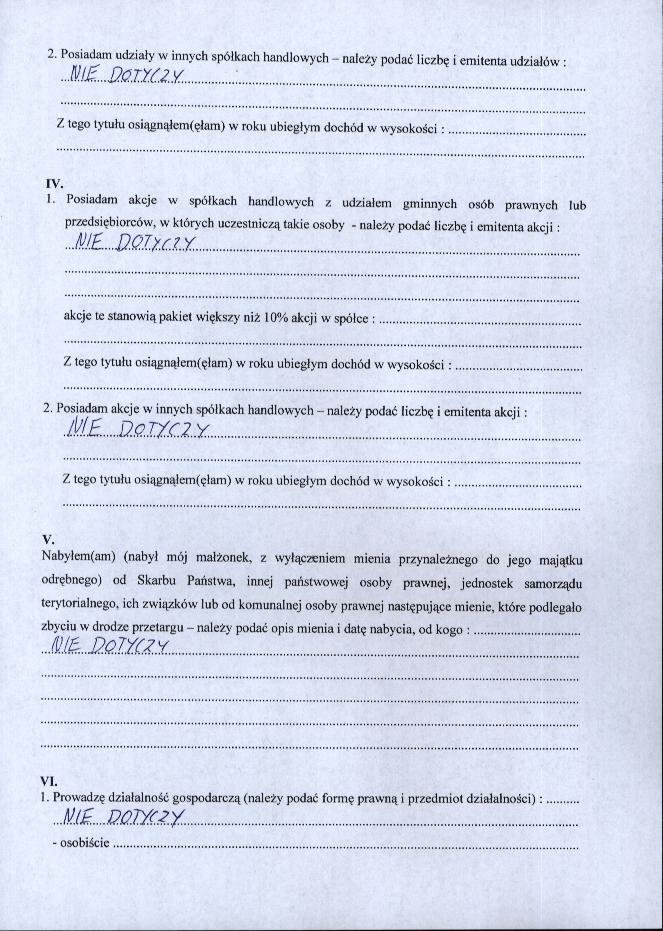 2. Posiadam udziały w innych spółkach handlowych – należy podać liczbę i emitenta udziałów :
NIE DOTYCZY
Z tego tytułu osiągnąłem(ęłam) w roku ubiegłym dochód w wysokości :
IV.
1. Posiadam akcje w spółkach handlowych z udziałem gminnych osób prawnych lub
przedsiębiorców, w których uczestniczą takie osoby - należy podać liczbę i emitenta akcji :
NIE DOTYCZY
akcje te stanowią pakiet większy niż 10% akcji w spółce :
Z tego tytułu osiągnąłem(ęłam) w roku ubiegłym dochód w wysokości :
2. Posiadam akcje w innych spółkach handlowych – należy podać liczbę i emitenta akcji :
NIE DOTYCZY
Z tego tytułu osiągnąłem(ęłam) w roku ubiegłym dochód w wysokości :
V.
Nabyłem(am) (nabył mój małżonek, z wyłączeniem mienia przynależnego do jego majątku
odrębnego) od Skarbu Państwa, innej państwowej osoby prawnej, jednostek samorządu
terytorialnego, ich związków lub od komunalnej osoby prawnej następujące mienie, które podlegało
zbyciu w drodze przetargu – należy podać opis mienia i datę nabycia, od kogo :
NIE DOTYCZY
VI.
1. Prowadzę działalność gospodarczą (należy podać formę prawną i przedmiot działalności) :
NIE DOTYCZY
- osobiście